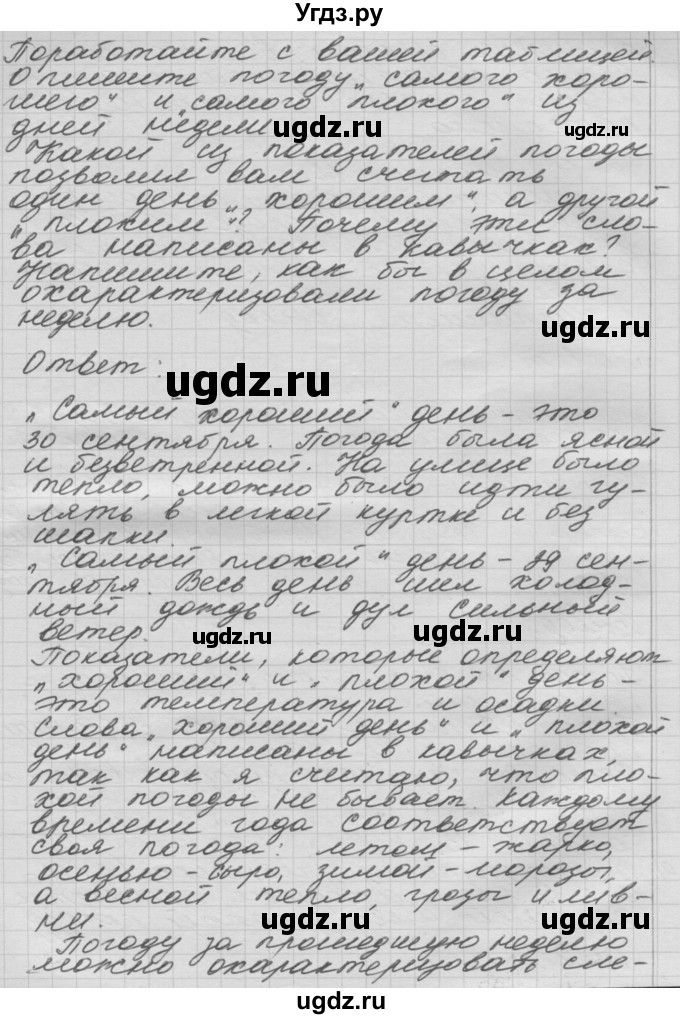 Угдз.ру
Поработайте с вашей таблицей.
Опишите погоду „самого хоро-
шего" и „самого плохого" из
дней недели.
Какой из показателей погоды
позволил вам считать
один день „хорошим", а другой
„плохим"? Почему эти сло-
ва написаны в кавычках?
Напишите, как бы в целом
охарактеризовали погоду за
неделю.
Ответ:
„Самый хороший" день - это
30 сентября. Погода была ясной
и безветренной. На улице было
тепло, можно было идти гу-
лять в легкой куртке и без
шапки.
„Самый плохой" день - 29 сен-
тября. Весь день шел холод-
ный дождь и дул сильный
ветер.
Показатели, которые определяют
„хороший" и „плохой" день -
это температура и осадки.
Слова „хороший день" и „плохой
день" написаны в кавычках,
так как я считаю, что пло-
хой погоды не бывает. Каждому
времени года соответствует
своя погода: летом - жарко,
осенью - сыро, зимой - морозы,
а весной тепло, грозы и лив-
ни.
Погоду за прошедшую неделю
можно охарактеризовать сле-
ugdz.ru
ugdz.ru
ugdz.ru
ugdz.ru
ugdz.ru
ugdz.ru
ugdz.ru
ugdz.ru
ugdz.ru
ugdz.ru
ugdz.ru
ugdz.ru
ugdz.ru
ugdz.ru